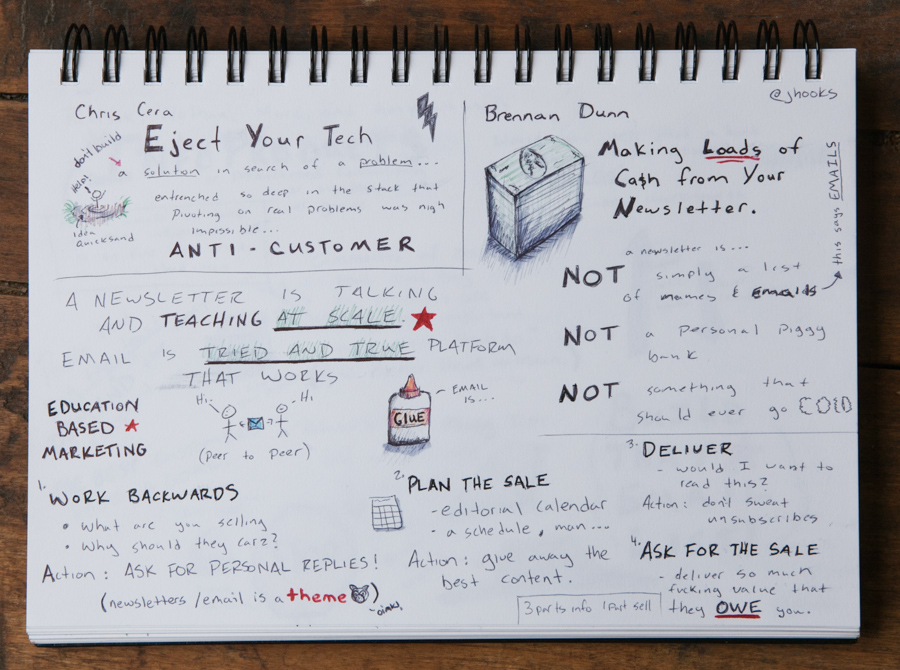 @jhooks
Chris Cera
Eject Your Tech
don't build
a solution in search of a problem...
Help!
idea
quicksand
entrenched so deep in the stack that
pivoting on real problems was nigh
impossible...
ANTI-CUSTOMER
Brennan Dunn
Making Loads of
Ca$h from Your
Newsletter.
a newsletter is...
NOT simply a list
of names & emails
this says EMAILS
NOT a personal piggy
bank
NOT something that
should ever go COLD
A NEWSLETTER IS TALKING
AND TEACHING AT SCALE.
EMAIL IS TRIED AND TRUE PLATFORM
THAT WORKS
EDUCATION
BASED
MARKETING
Hi-
-Hi
(peer to peer)
GLUE
EMAIL
IS...
1. WORK BACKWARDS
• What are you selling
• Why should they care?
Action: ASK FOR PERSONAL REPLIES!
(newsletters/email is a theme)
-oink!
2. PLAN THE SALE
-editorial calendar
-a schedule, man...
Action: give away the
best content.
3 parts info 1 part sell
3. DELIVER
- would I want to
read this?
Action: don't sweat
unsubscribes
4. ASK FOR THE SALE
- deliver so much
fucking value that
they OWE you.